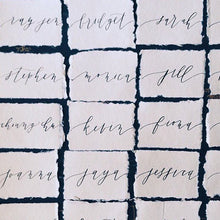 ray jen
bridget
sarah
stephen
monica
jill
kevin
fiona
joanna
jaya
jessica